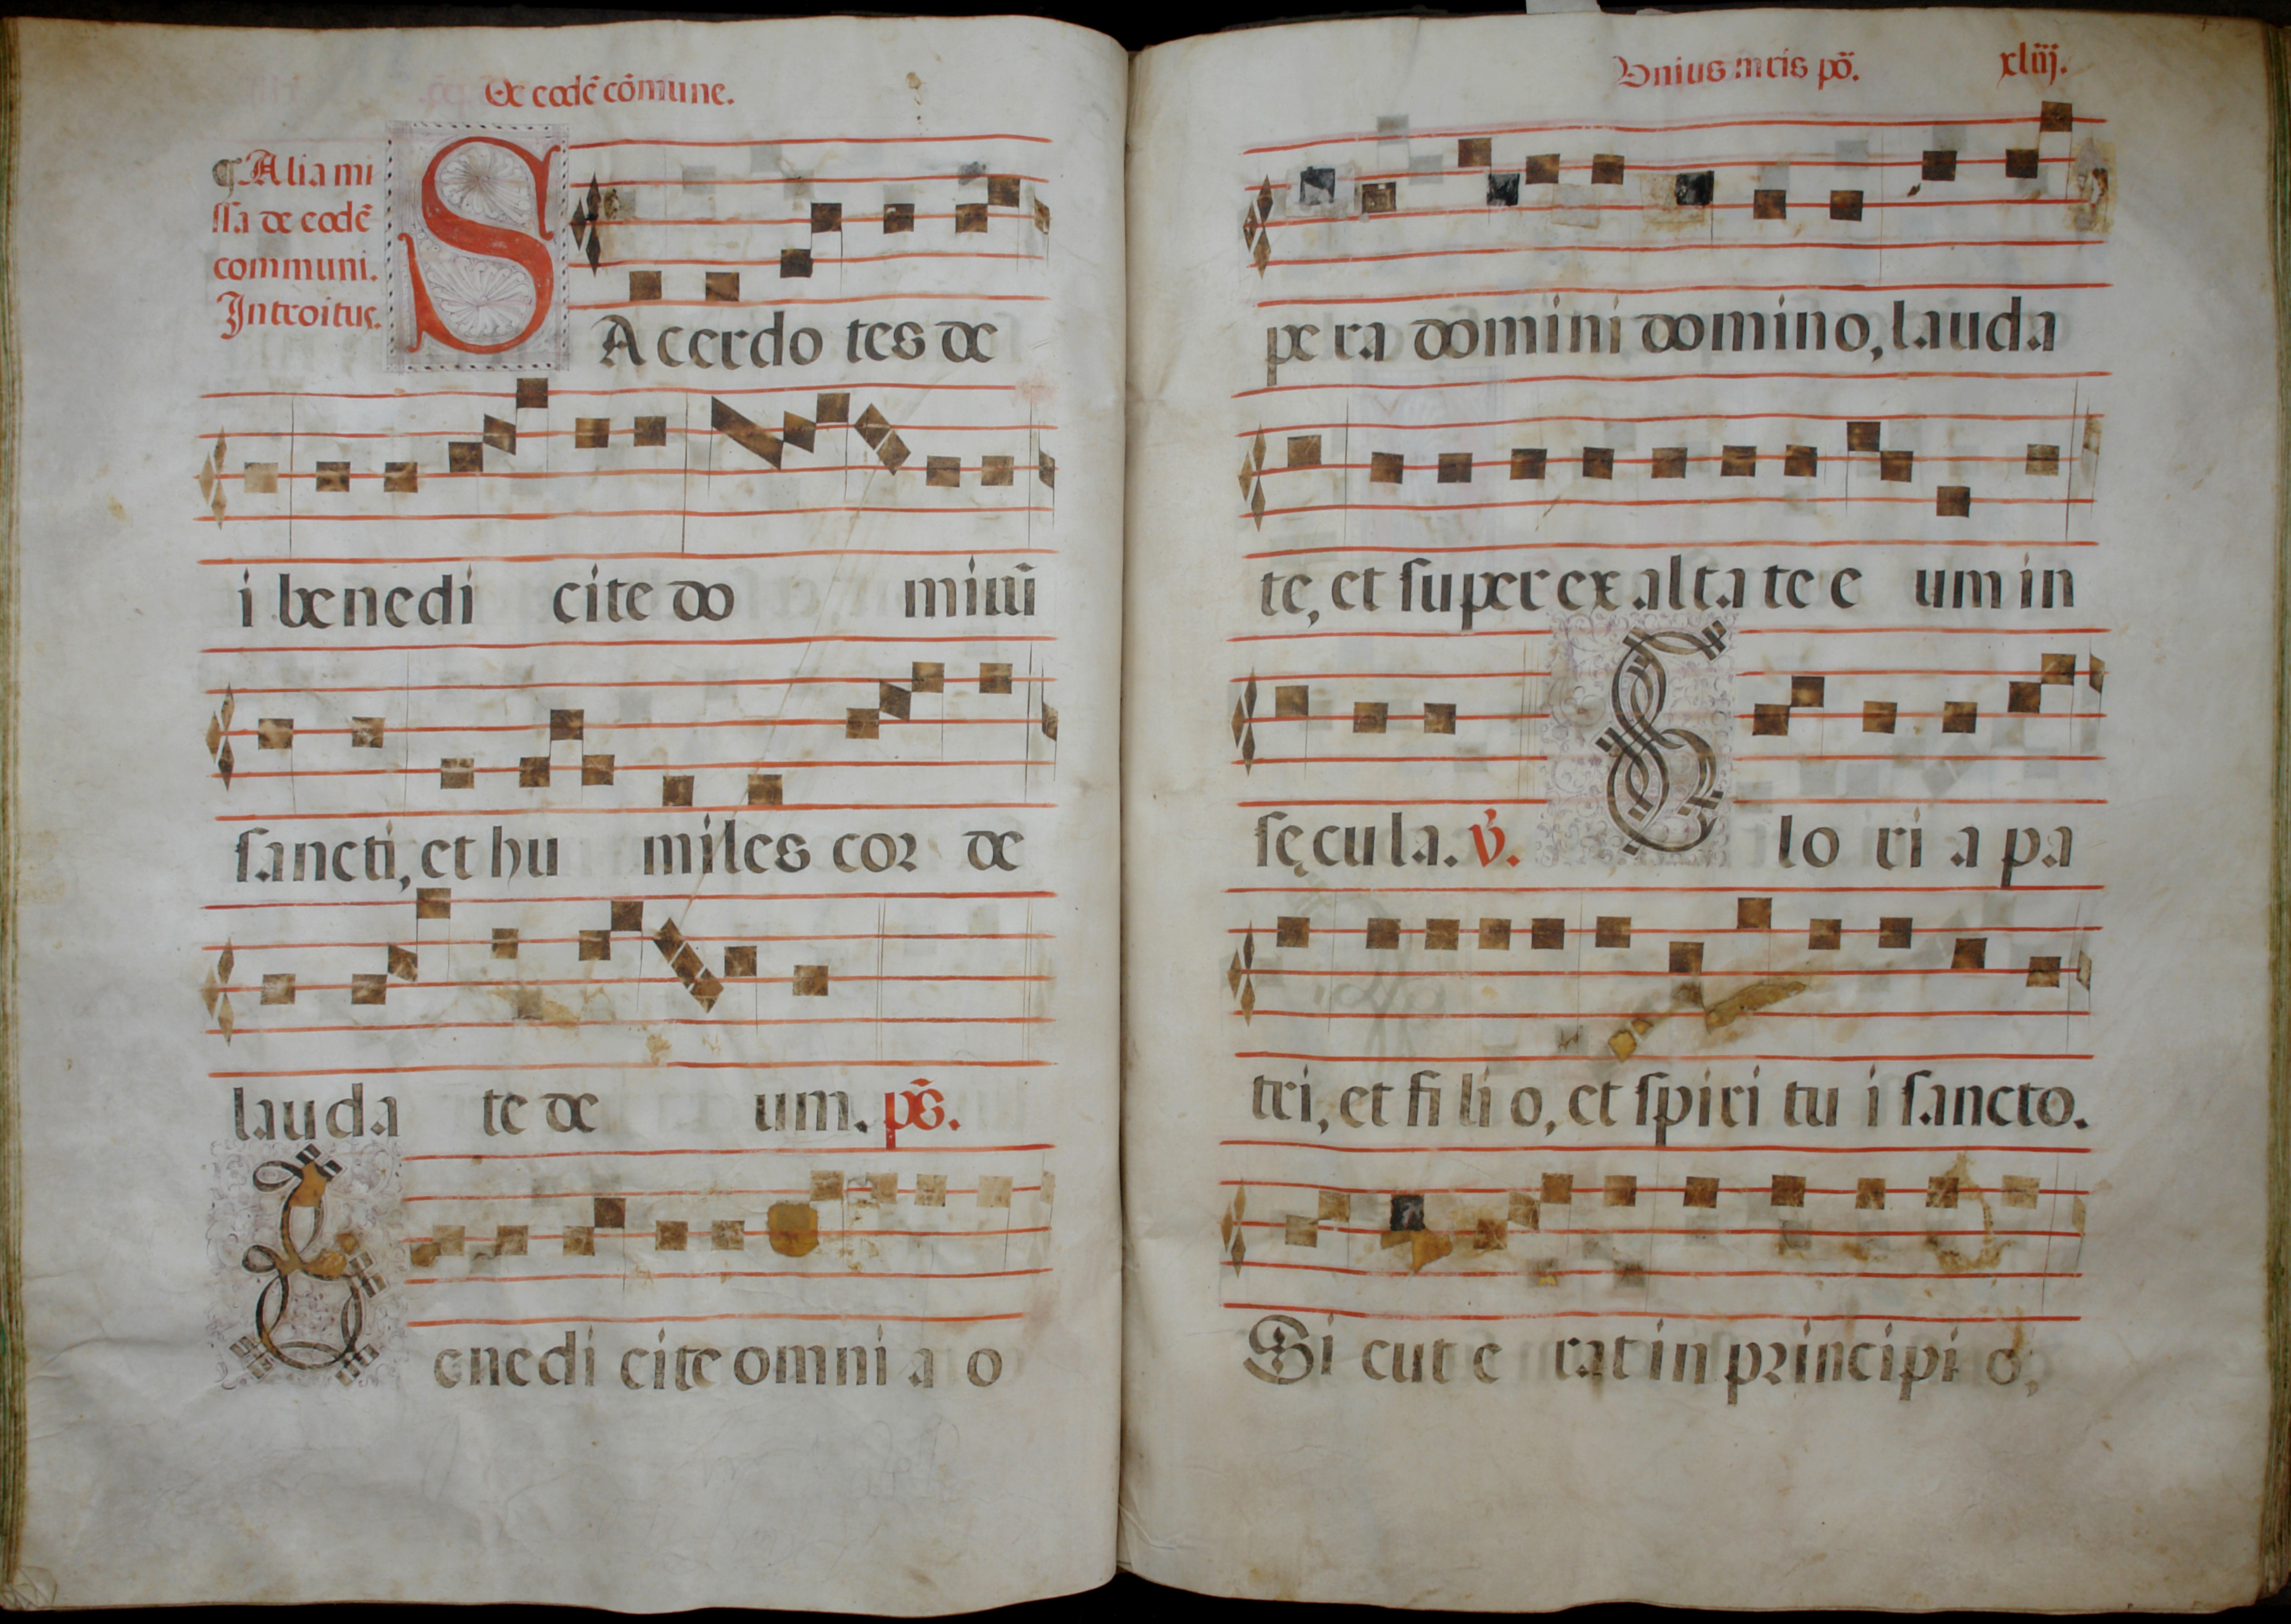 De eodē cōmune.
¶ Alia mi
ssa de eodē
communi.
Introitus.
SAcerdo tes de
i benedi cite do minū
sancti, et hu miles cor de
lauda te de um. ps̄.
Benedi cite omni a o
Vnius mr̄is pō.
xliiij.
pe ra domini domino, lauda
te, et super ex alta te e um in
sęcula. v̄.
Glo ri a pa
tri, et fi li o, et spiri tu i sancto.
Si cut e rat in principi o,